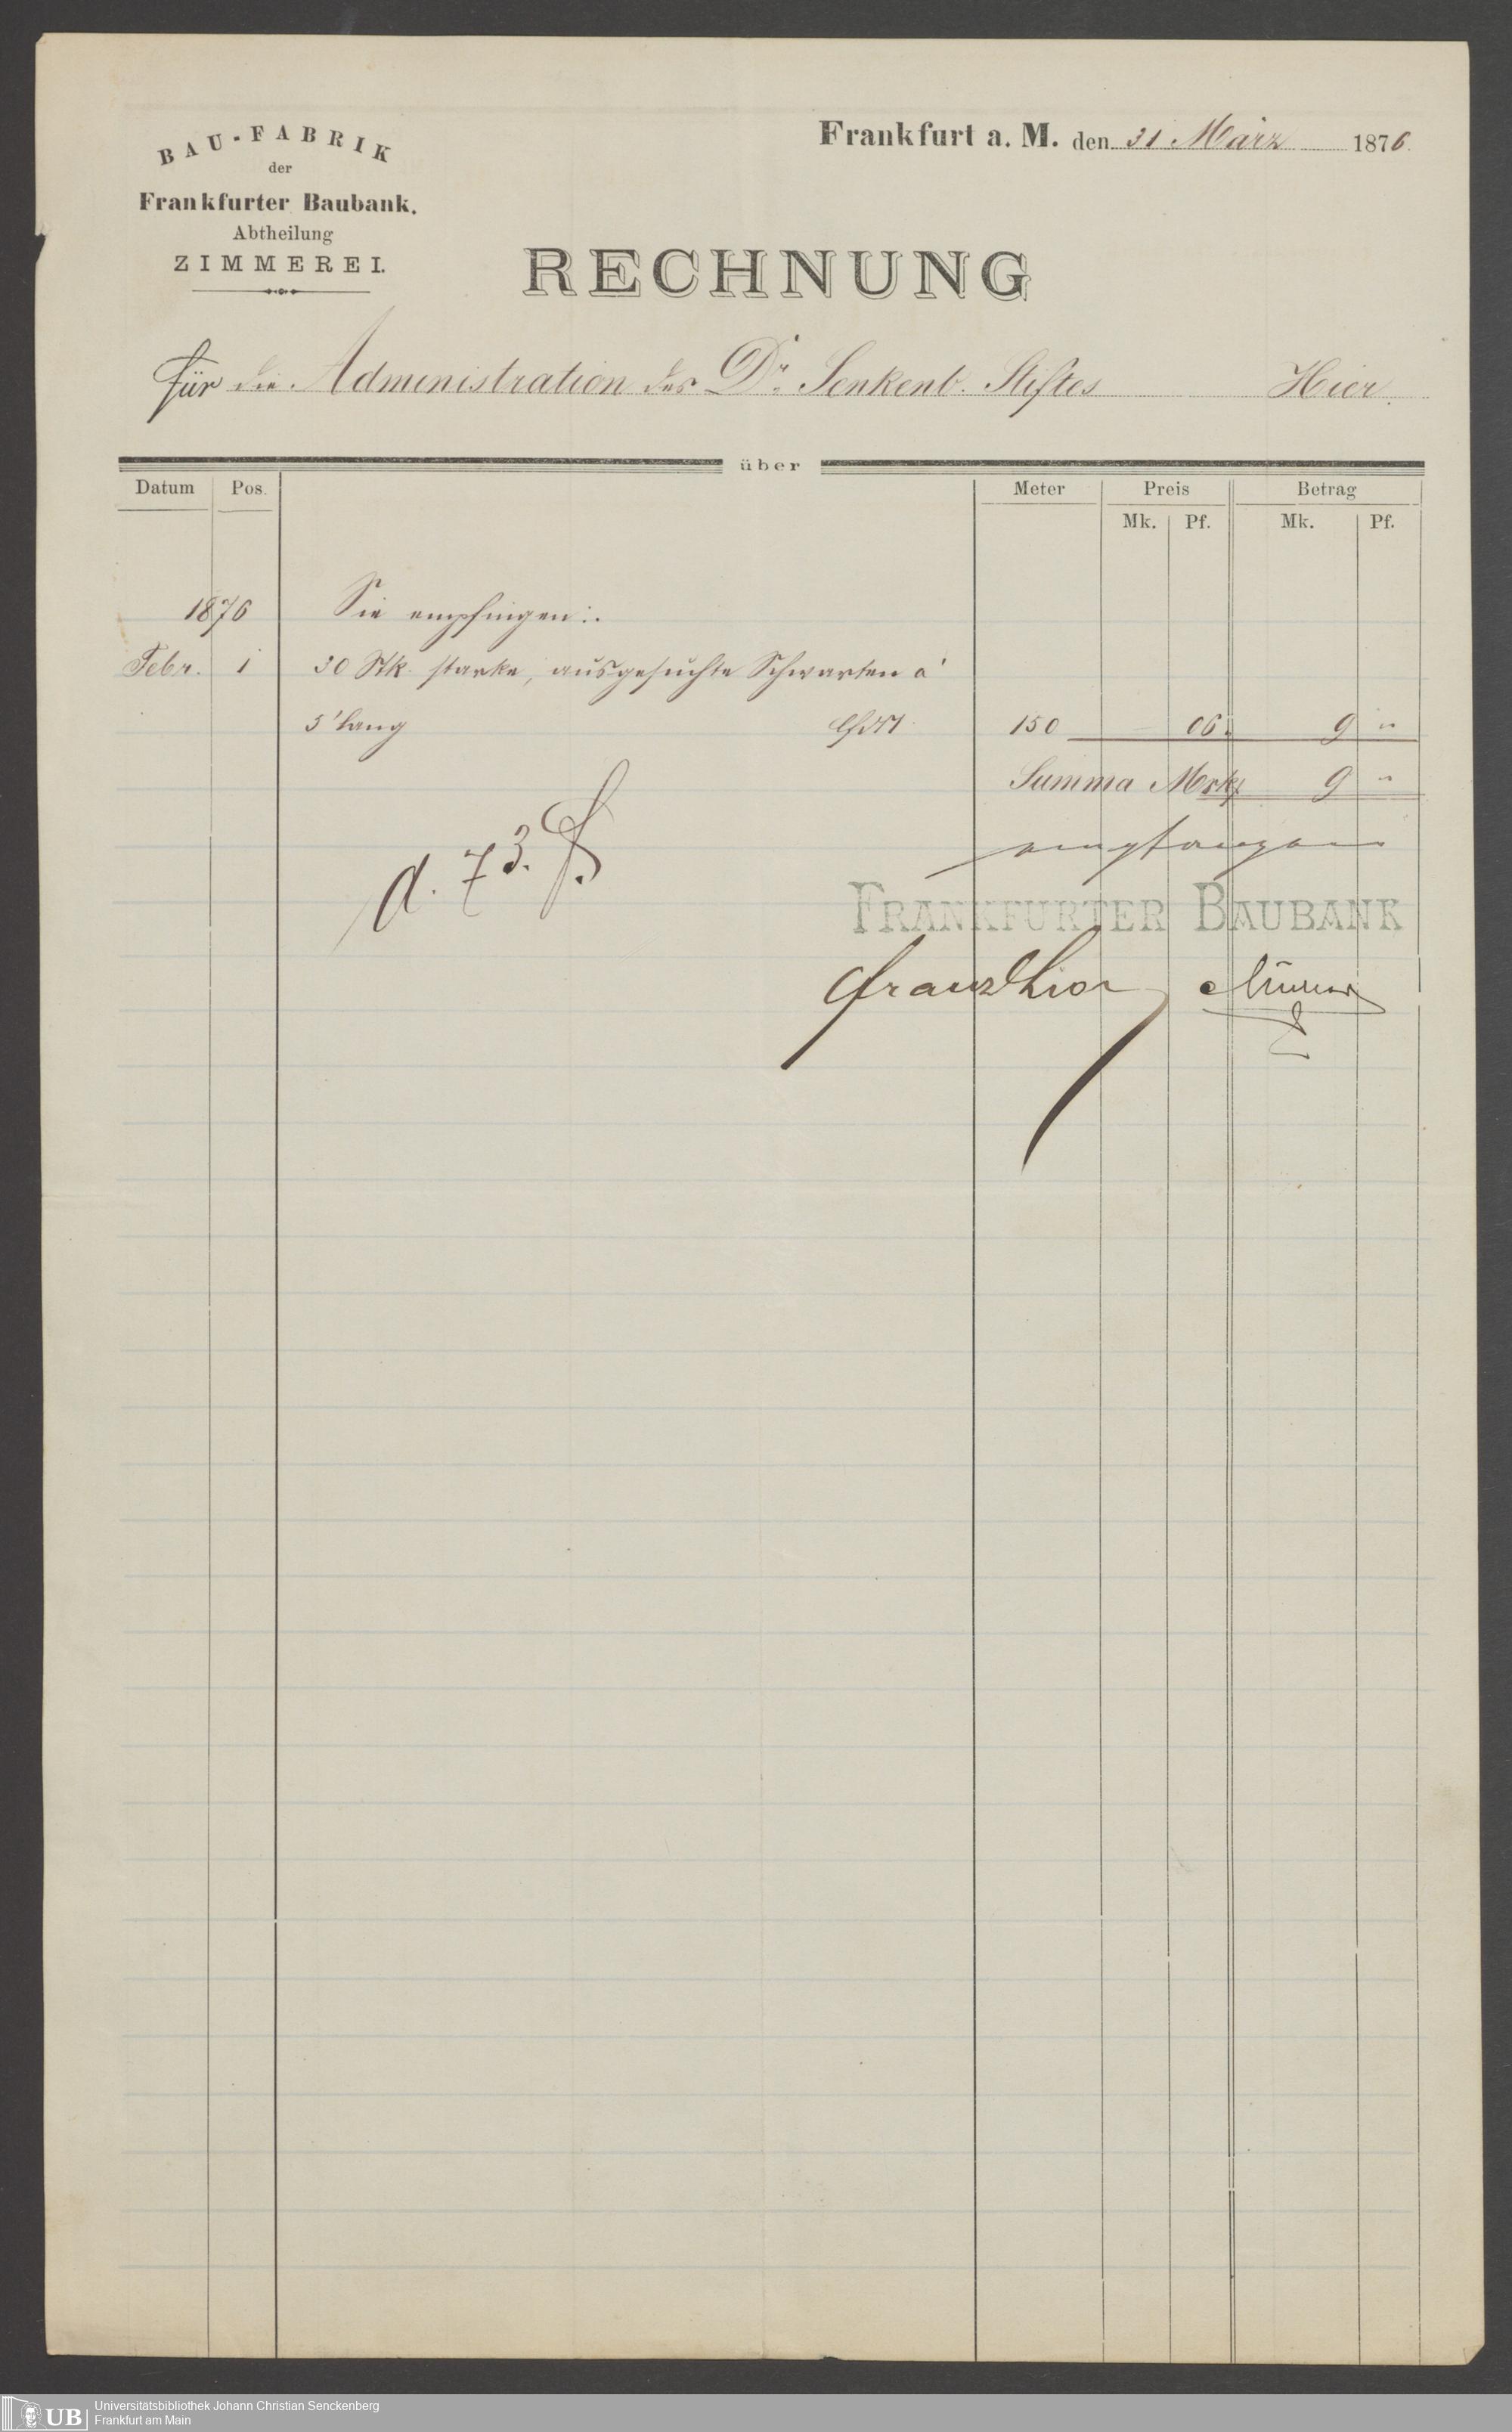 BAU-FABRIK
der
Frankfurter Baubank.
Abtheilung
ZIMMEREI.
Frankfurt a. M. den 31 März 1876.
RECHNUNG
für die Administration des Dr. Senkenb. Stiftes Hier.
über
Datum Pos. Meter Preis Betrag
Mk. Pf. Mk. Pf.
1876 Sie empfingen:.
Febr. 1 30 Stk. starke, ausgesuchte Schwarten á
5' lang lfd M 150 06. 9 "
Summa Mrk 9 "
empfangen
d. 73.
FRANKFURTER BAUBANK
UB Universitätsbibliothek Johann Christian Senckenberg
Frankfurt am Main